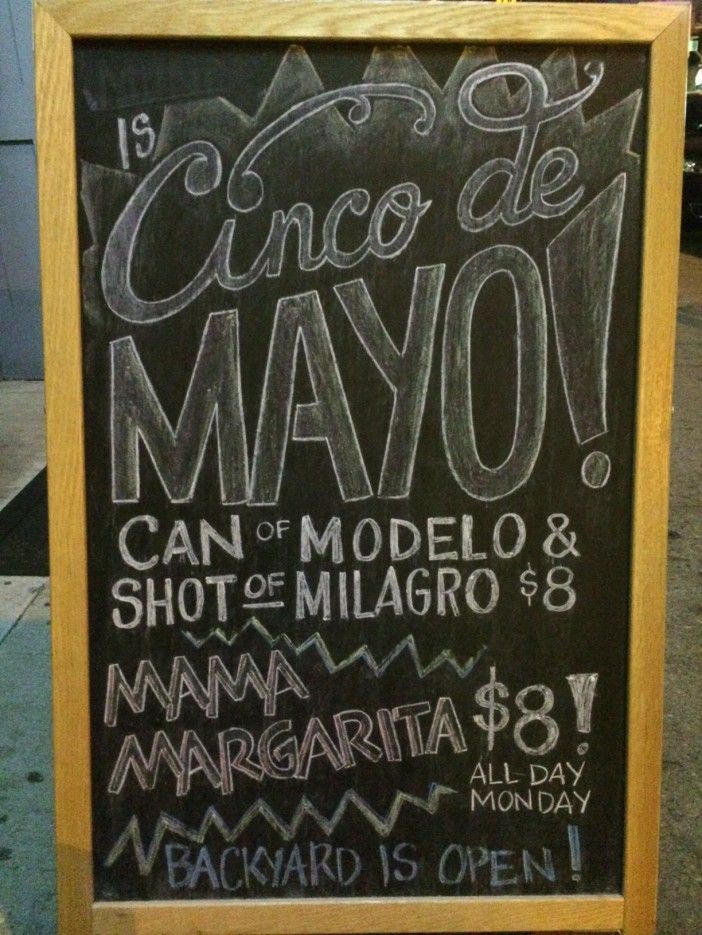 IS
Cinco de
MAYO!
CAN OF MODELO &
SHOT OF MILAGRO $8
MAMA
MARGARITA $8!
ALL DAY
MONDAY
BACKYARD IS OPEN!